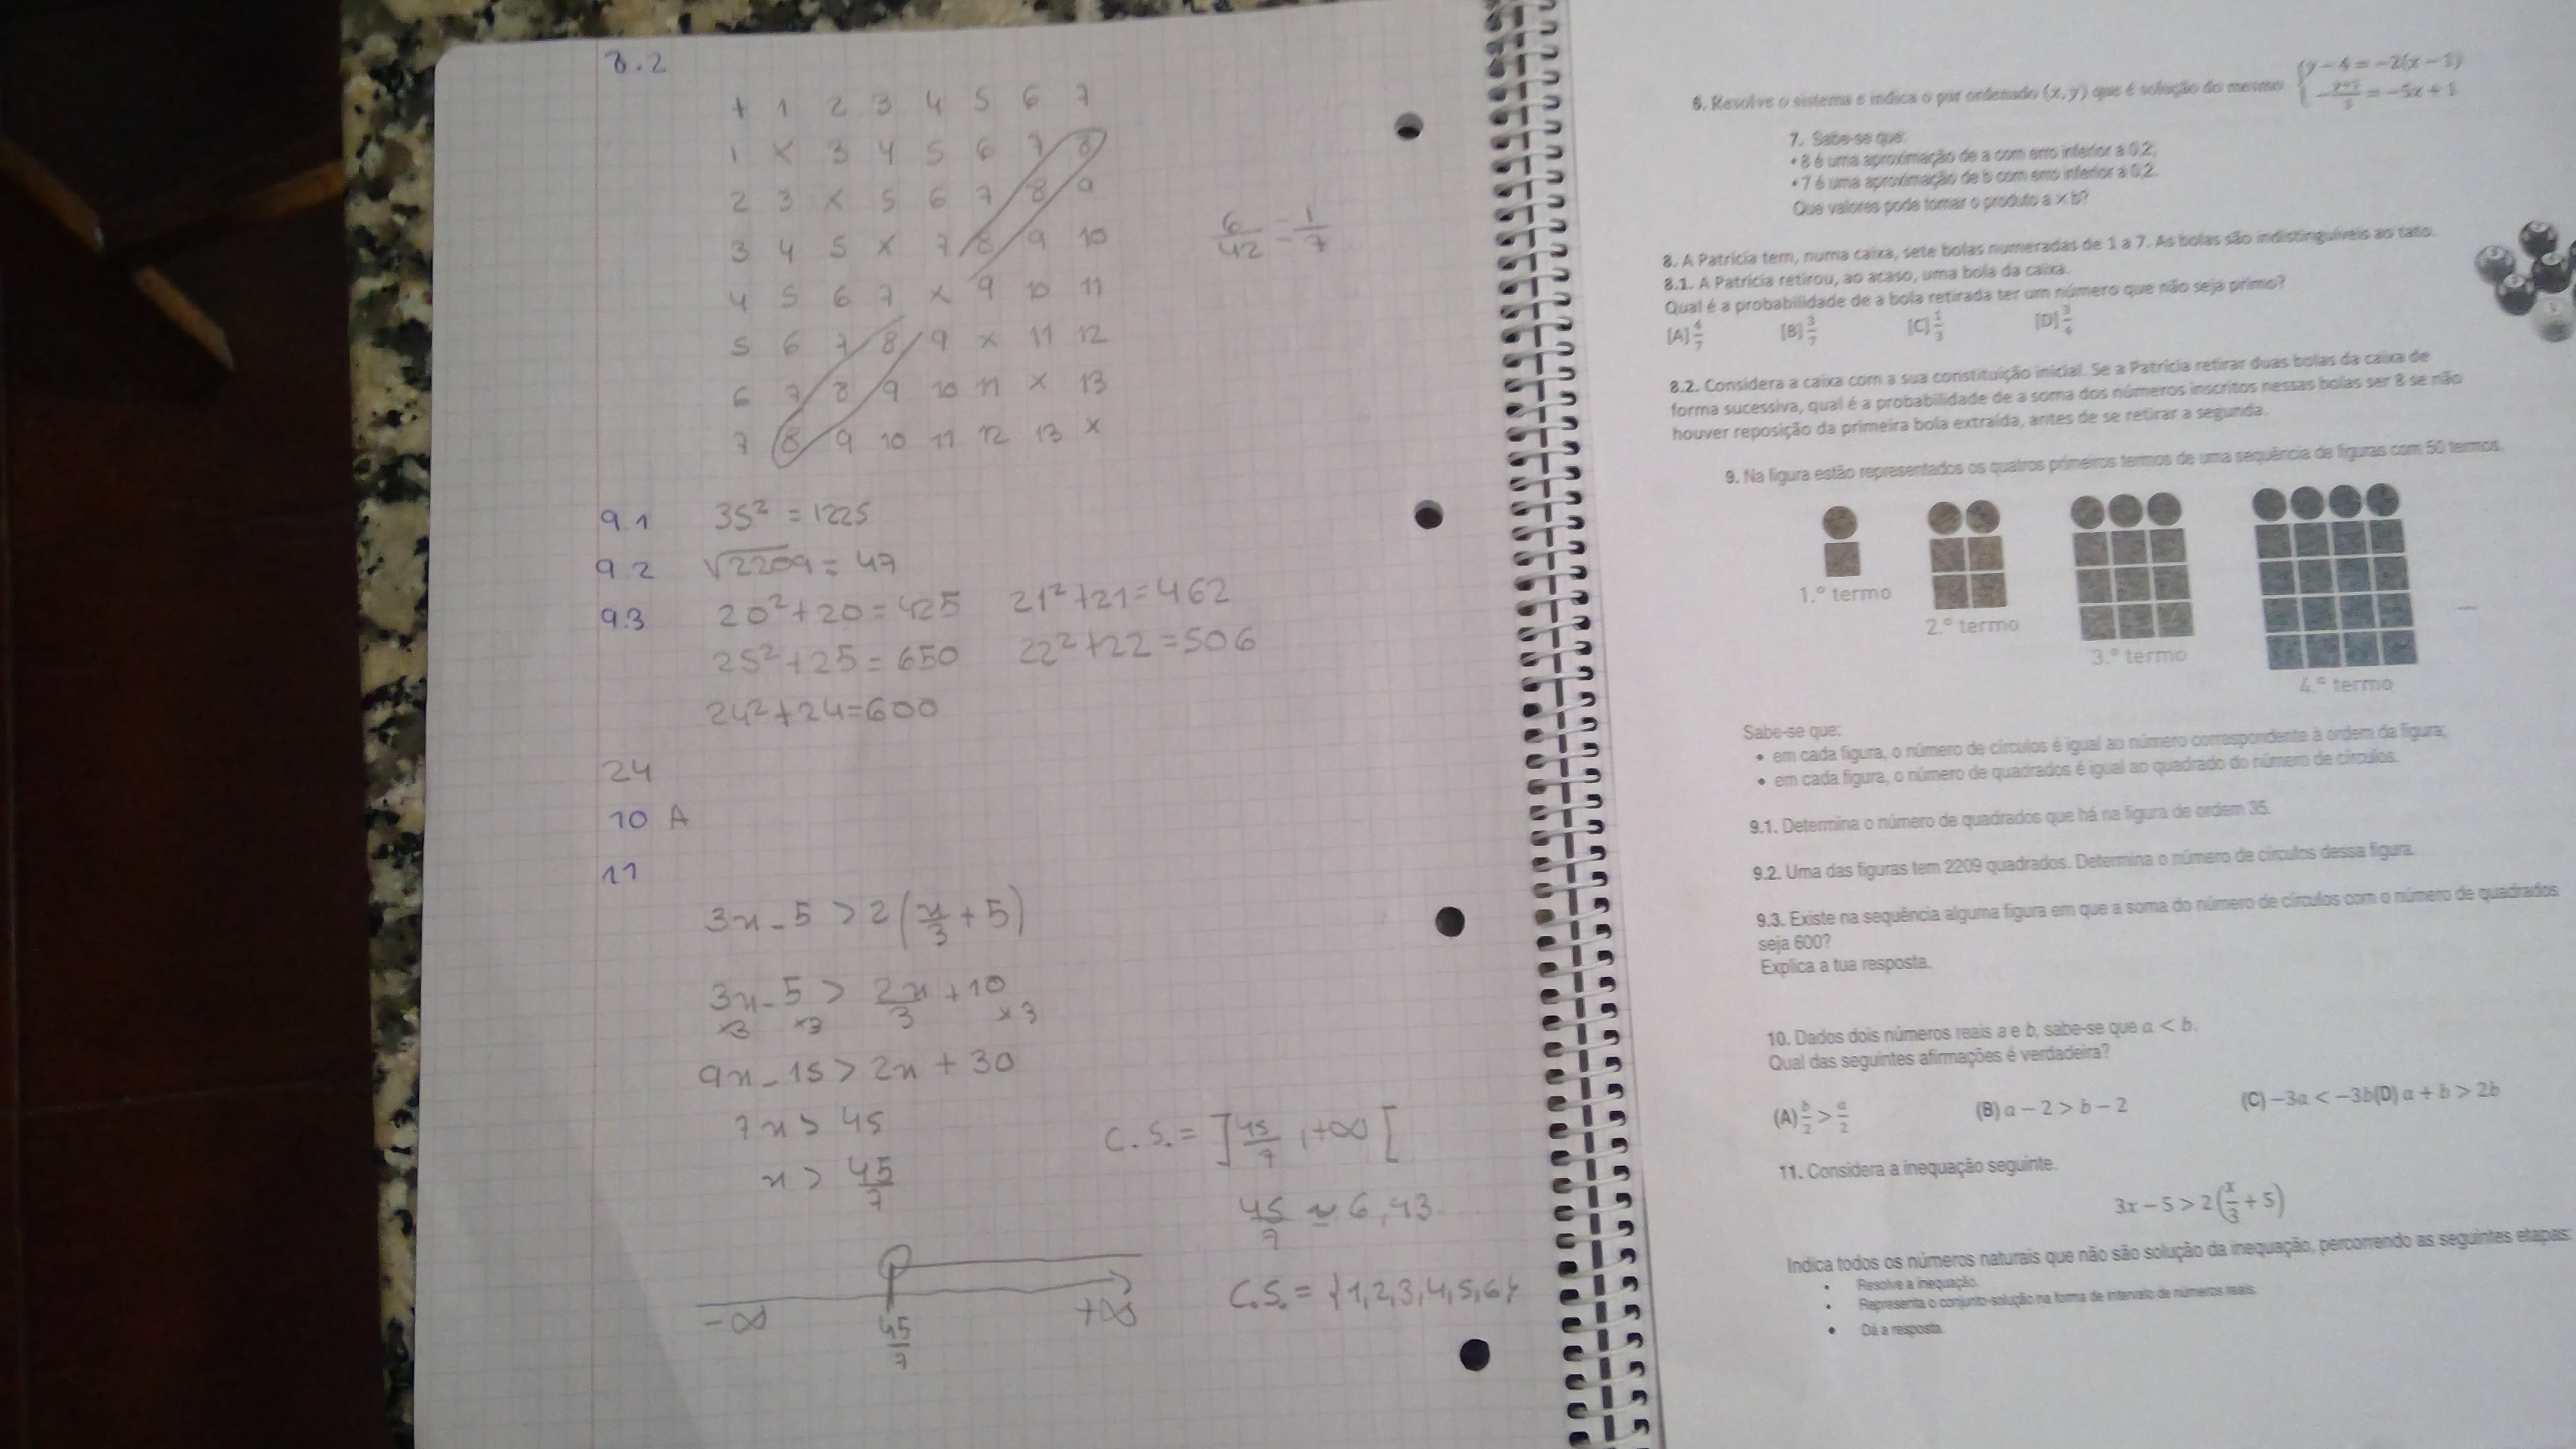 8.2
+ 1 2 3 4 5 6 7
1 × 3 4 5 6 7 8
2 3 × 5 6 7 8 9
3 4 5 × 7 8 9 10
4 5 6 7 × 9 10 11
5 6 7 8 9 × 11 12
6 7 8 9 10 11 × 13
7 8 9 10 11 12 13 ×
6/42 = 1/7
9.1 35² = 1225
9.2 √2209 = 47
9.3 20² + 20 = 425 21² + 21 = 462
25² + 25 = 650 22² + 22 = 506
24² + 24 = 600
24
10 A
11
3x - 5 > 2(x/3 + 5)
3x - 5 > 2x/3 + 10
×3 ×3 ×3
9x - 15 > 2x + 30
7x > 45
x > 45/7
C.S. = ]45/7, +∞[
45/7 ≈ 6,43
C.S. = {1,2,3,4,5,6}
-∞ 45/7 +∞
6. Resolve o sistema e indica o par ordenado (x, y) que é solução do mesmo { y - 4 = -2(x - 1)
= -5x + 1
7. Sabe-se que:
• 8 é uma aproximação de a com erro inferior a 0,2;
• 7 é uma aproximação de b com erro inferior a 0,2.
Que valores pode tomar o produto a × b?
8. A Patrícia tem, numa caixa, sete bolas numeradas de 1 a 7. As bolas são indistinguíveis ao tato.
8.1. A Patrícia retirou, ao acaso, uma bola da caixa.
Qual é a probabilidade de a bola retirada ter um número que não seja primo?
[A] 4/7 [B] 3/7 [C] 1/3 [D] 3/4
8.2. Considera a caixa com a sua constituição inicial. Se a Patrícia retirar duas bolas da caixa de
forma sucessiva, qual é a probabilidade de a soma dos números inscritos nessas bolas ser 8 se não
houver reposição da primeira bola extraída, antes de se retirar a segunda.
9. Na figura estão representados os quatros primeiros termos de uma sequência de figuras com 50 termos.
1.º termo
2.º termo
3.º termo
4.º termo
Sabe-se que:
• em cada figura, o número de círculos é igual ao número correspondente à ordem da figura;
• em cada figura, o número de quadrados é igual ao quadrado do número de círculos.
9.1. Determina o número de quadrados que há na figura de ordem 35.
9.2. Uma das figuras tem 2209 quadrados. Determina o número de círculos dessa figura.
9.3. Existe na sequência alguma figura em que a soma do número de círculos com o número de quadrados
seja 600?
Explica a tua resposta.
10. Dados dois números reais a e b, sabe-se que a < b.
Qual das seguintes afirmações é verdadeira?
(A) b/2 > a/2 (B) a - 2 > b - 2 (C) -3a < -3b(D) a + b > 2b
11. Considera a inequação seguinte.
3x - 5 > 2(x/3 + 5)
Indica todos os números naturais que não são solução da inequação, percorrendo as seguintes etapas:
• Resolve a inequação.
• Representa o conjunto-solução na forma de intervalo de números reais.
• Dá a resposta.